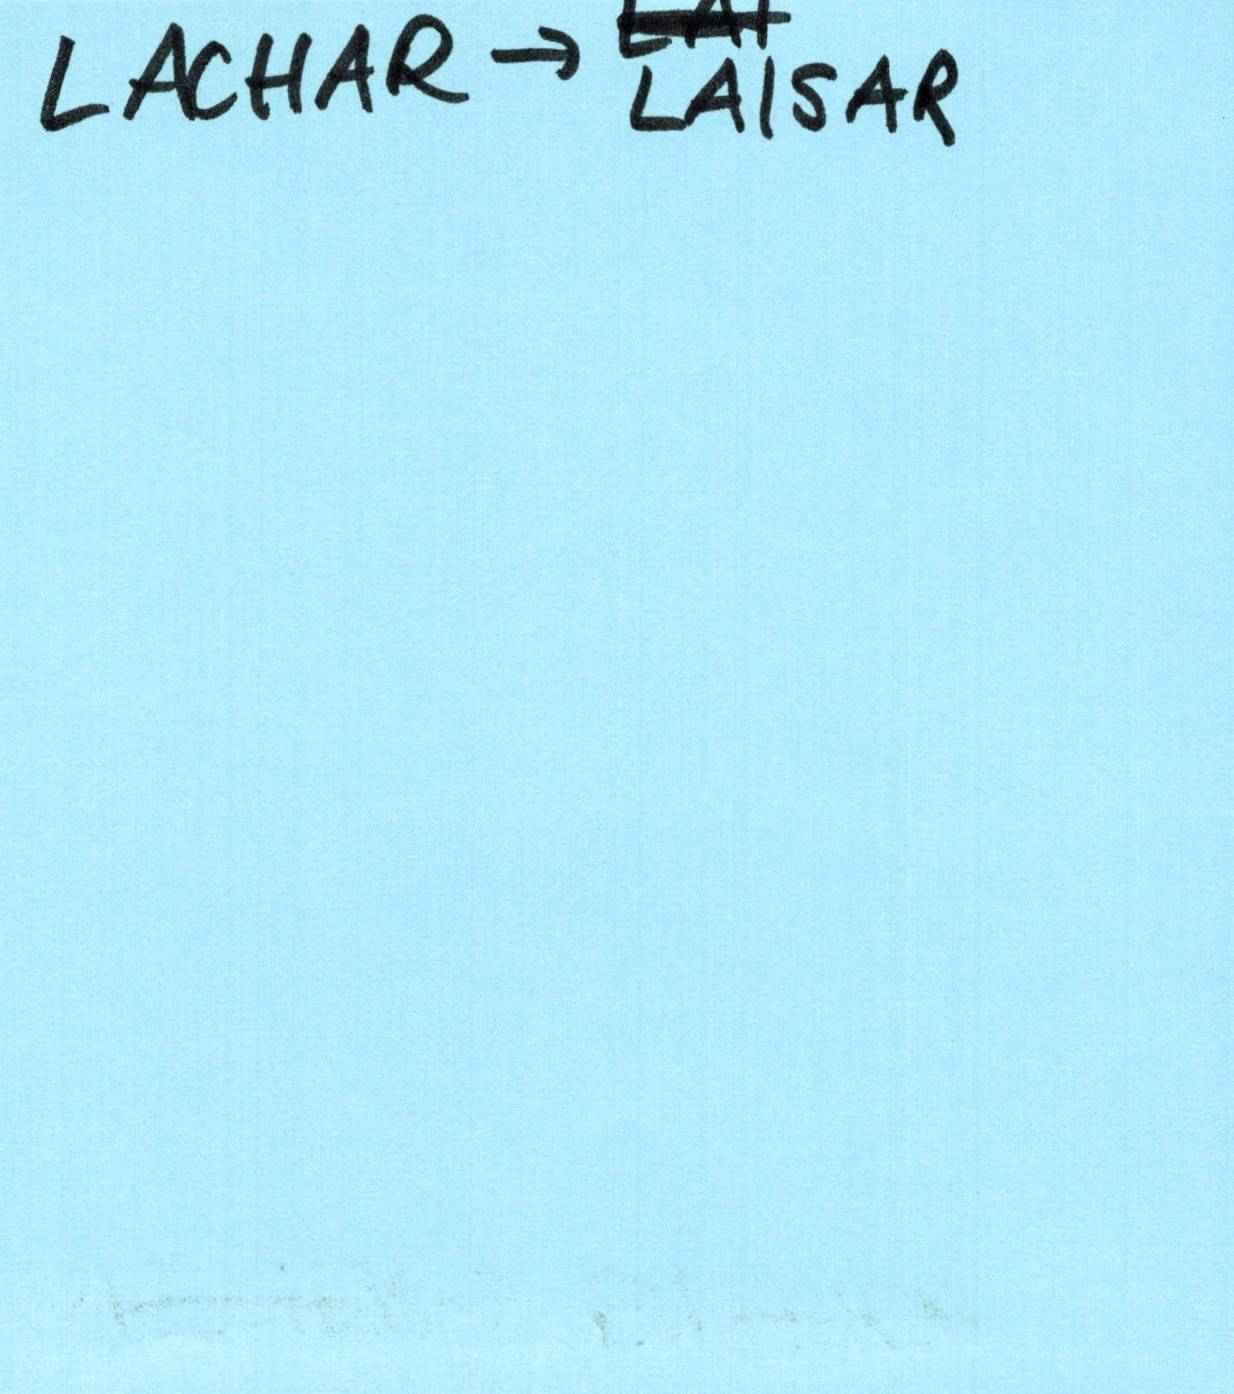 LACHAR → LAISAR